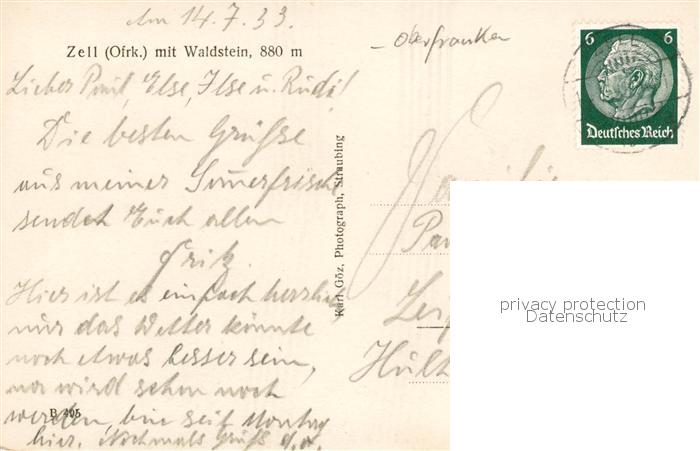 Am 14.7.33.
Zell (Ofrk.) mit Waldstein, 880 m
Lieber Paul, Else, Ilse u. Rudi!
Die besten Grüße
aus meiner Sommerfrische
sendet Euch allen
Fritz.
Hier ist es einfach herrlich,
nur das Wetter könnte
noch etwas besser sein,
na wird schon noch
werden, bin seit Montag
hier. Nochmals Gruß d.o.
B 405
Karl Göz, Photograph, Straubing
- Oberfranken
6 6
Deutsches Reich
Familie
privacy protection
Datenschutz